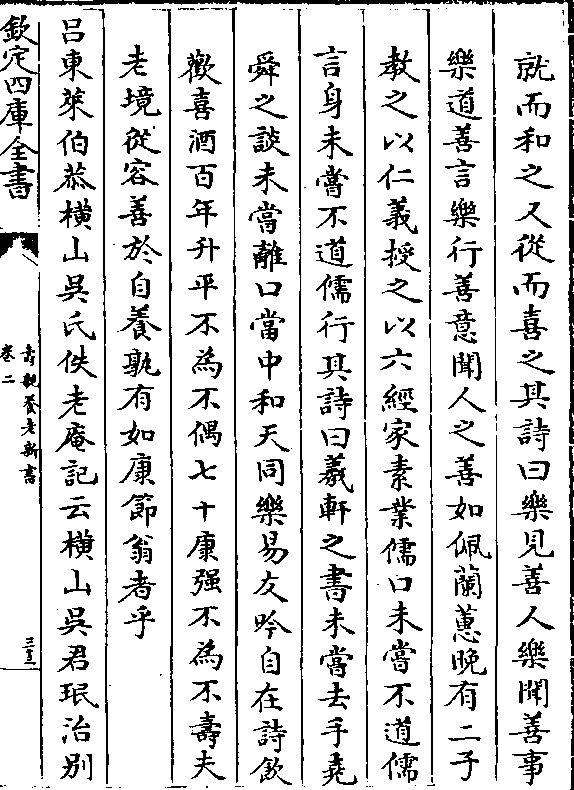 就而和之又從而喜之其詩曰樂見善人樂聞善事
樂道善言樂行善意聞人之善如佩蘭蕙晚有二子
教之以仁義授之以六經家素業儒口未嘗不道儒
言身未嘗不道儒行其詩曰羲軒之書未嘗去手堯
舜之談未嘗離口當中和天同樂易友吟自在詩飲
歡喜酒百年升平不為不偶七十康强不為不壽夫
老境從容善於自養孰有如康節翁者乎
吕東萊伯恭横山吳氏佚老庵記云横山吳君珉治别
欽定四庫全書
壽親養老新書
卷二
三十三